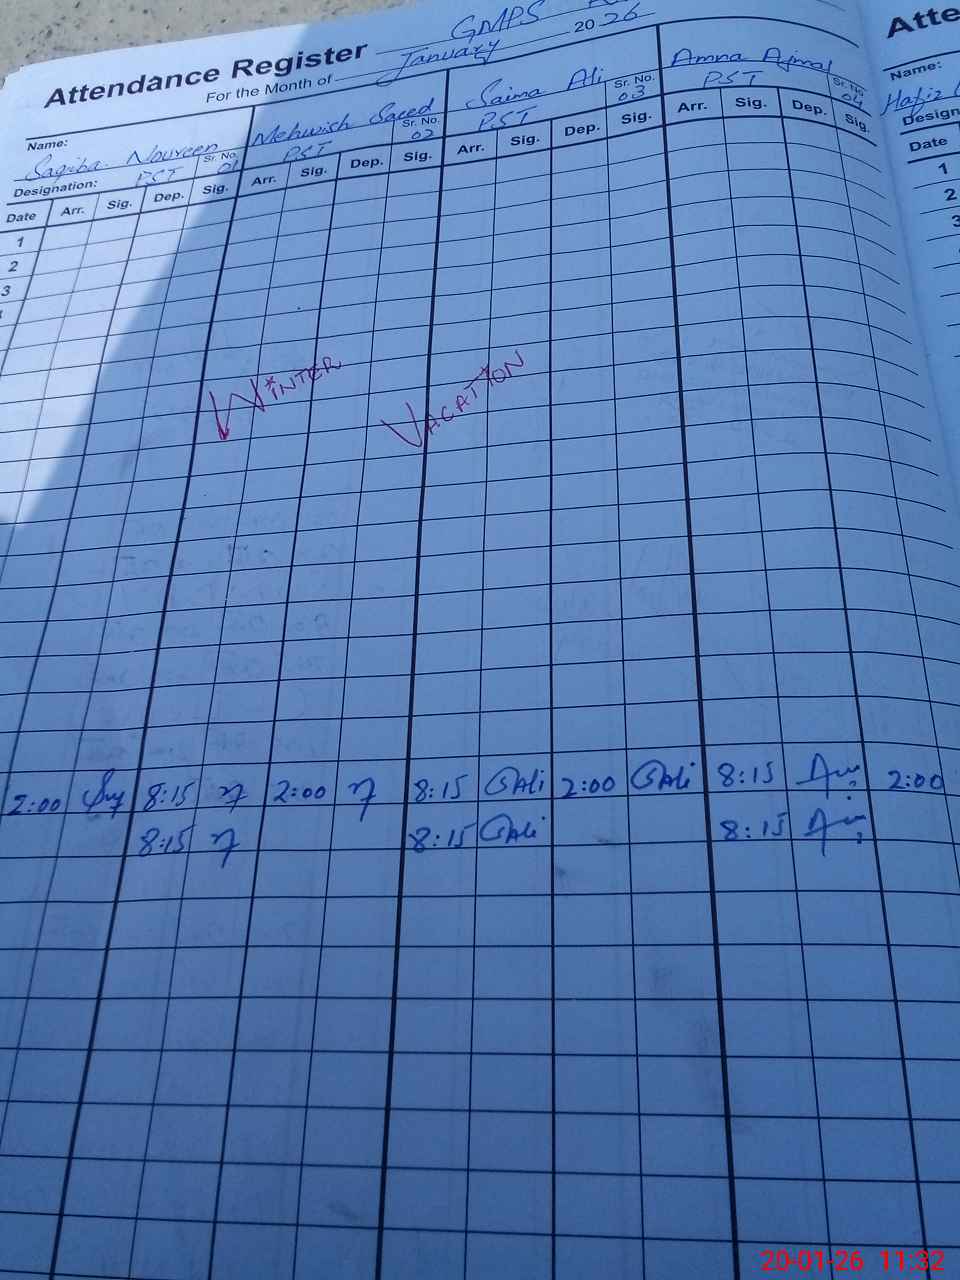 GMPS
Attendance Register
For the Month of January 2026
Atte
Name: Saqiba Noureen Sr. No. 01
Mehwish Saeed Sr. No. 02
Saima Ali Sr. No. 03
Amna Ajmal Sr. No. 04
Name: Hafiz
Designation: PST PST PST PST
Design
Date Arr. Sig. Dep. Sig. Arr. Sig. Dep. Sig. Arr. Sig. Dep. Sig. Arr. Sig. Dep. Sig.
Date
1 1
2 2
3 3
WINTER VACATION
2:00 8:15 2:00 8:15 SAli 2:00 SAli 8:15 2:00
8:15 8:15 SAli 8:15
20-01-26 11:32